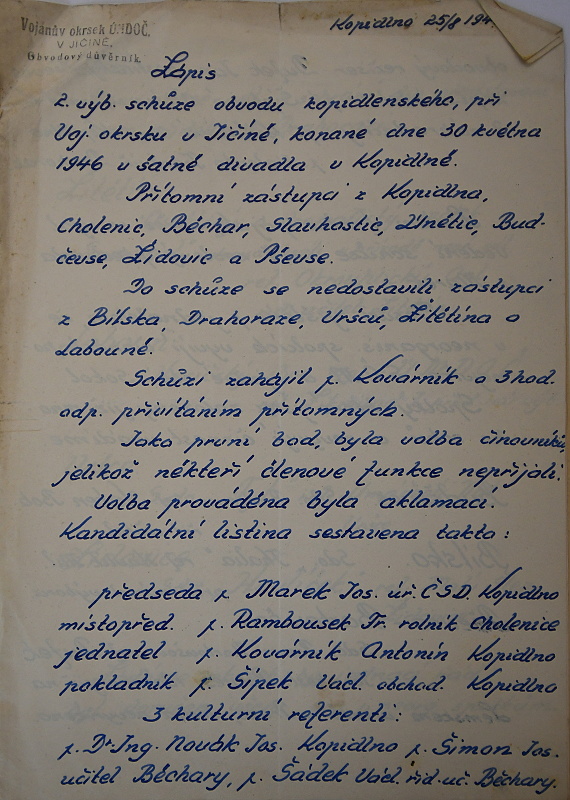 Vojanův okrsek ÚMDOČ.
V JIČÍNĚ,
Obvodový důvěrník.
Kopidlno 25/8 194
Zápis
2. výb. schůze obvodu kopidlenského, při
Voj okrsku v Jičíně, konané dne 30 května
1946 v šatně divadla v Kopidlně.
Přítomní zástupci z Kopidlna,
Cholenic, Běchar, Slavhostic, Únětic, Bud-
čevse, Židovic a Pševse.
Do schůze se nedostavili zástupci
z Bílska, Drahoraze, Vršců, Žitětína a
Labouně.
Schůzi zahájil p. Kovárník o 3 hod.
odp. přivítáním přítomných.
Jako první bod, byla volba činovníků,
jelikož někteří členové funkce nepřijali.
Volba prováděna byla aklamací.
Kandidátní listina sestavena takto:
předseda p. Marek Jos. úř. ČSD. Kopidlno
místopřed. p. Rambousek Fr. rolník Cholenice
jednatel p. Kovárník Antonín Kopidlno
pokladník p. Šípek Václ. obchod. Kopidlno
3 kulturní referenti:
p. Dr Ing. Novák Jos. Kopidlno p. Šimon Jos.
učitel Běchary, p. Šádek Václ. říd. uč. Běchary.